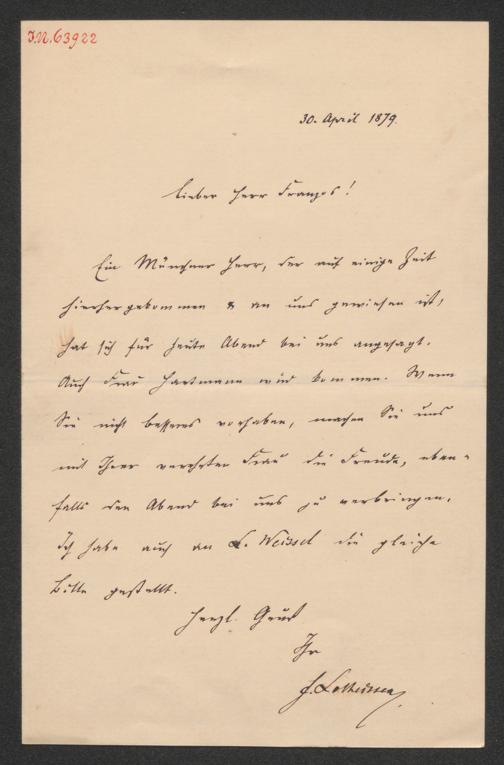 J.N. 63922
30. April 1879.
Lieber Herr Franzos!
Ein Münchner Herr, der auf einige Zeit
hierher gekommen & an uns gewiesen ist,
hat sich für heute Abend bei uns angesagt.
Auch Frau Hartmann wird kommen. Wenn
Sie nicht besseres vorhaben, machen Sie uns
mit Ihrer verehrten Frau die Freude, eben-
falls den Abend bei uns zu verbringen.
Ich habe auch an L. Weissel die gleiche
Bitte gestellt.
Herzl. Gruß
Ihr
F. Lotheissen